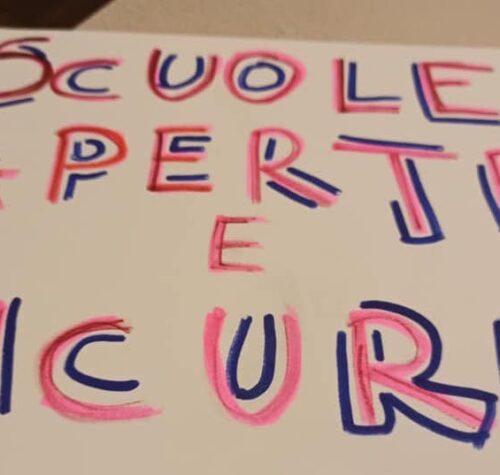 SCUOLE
PERT
E
ICUR